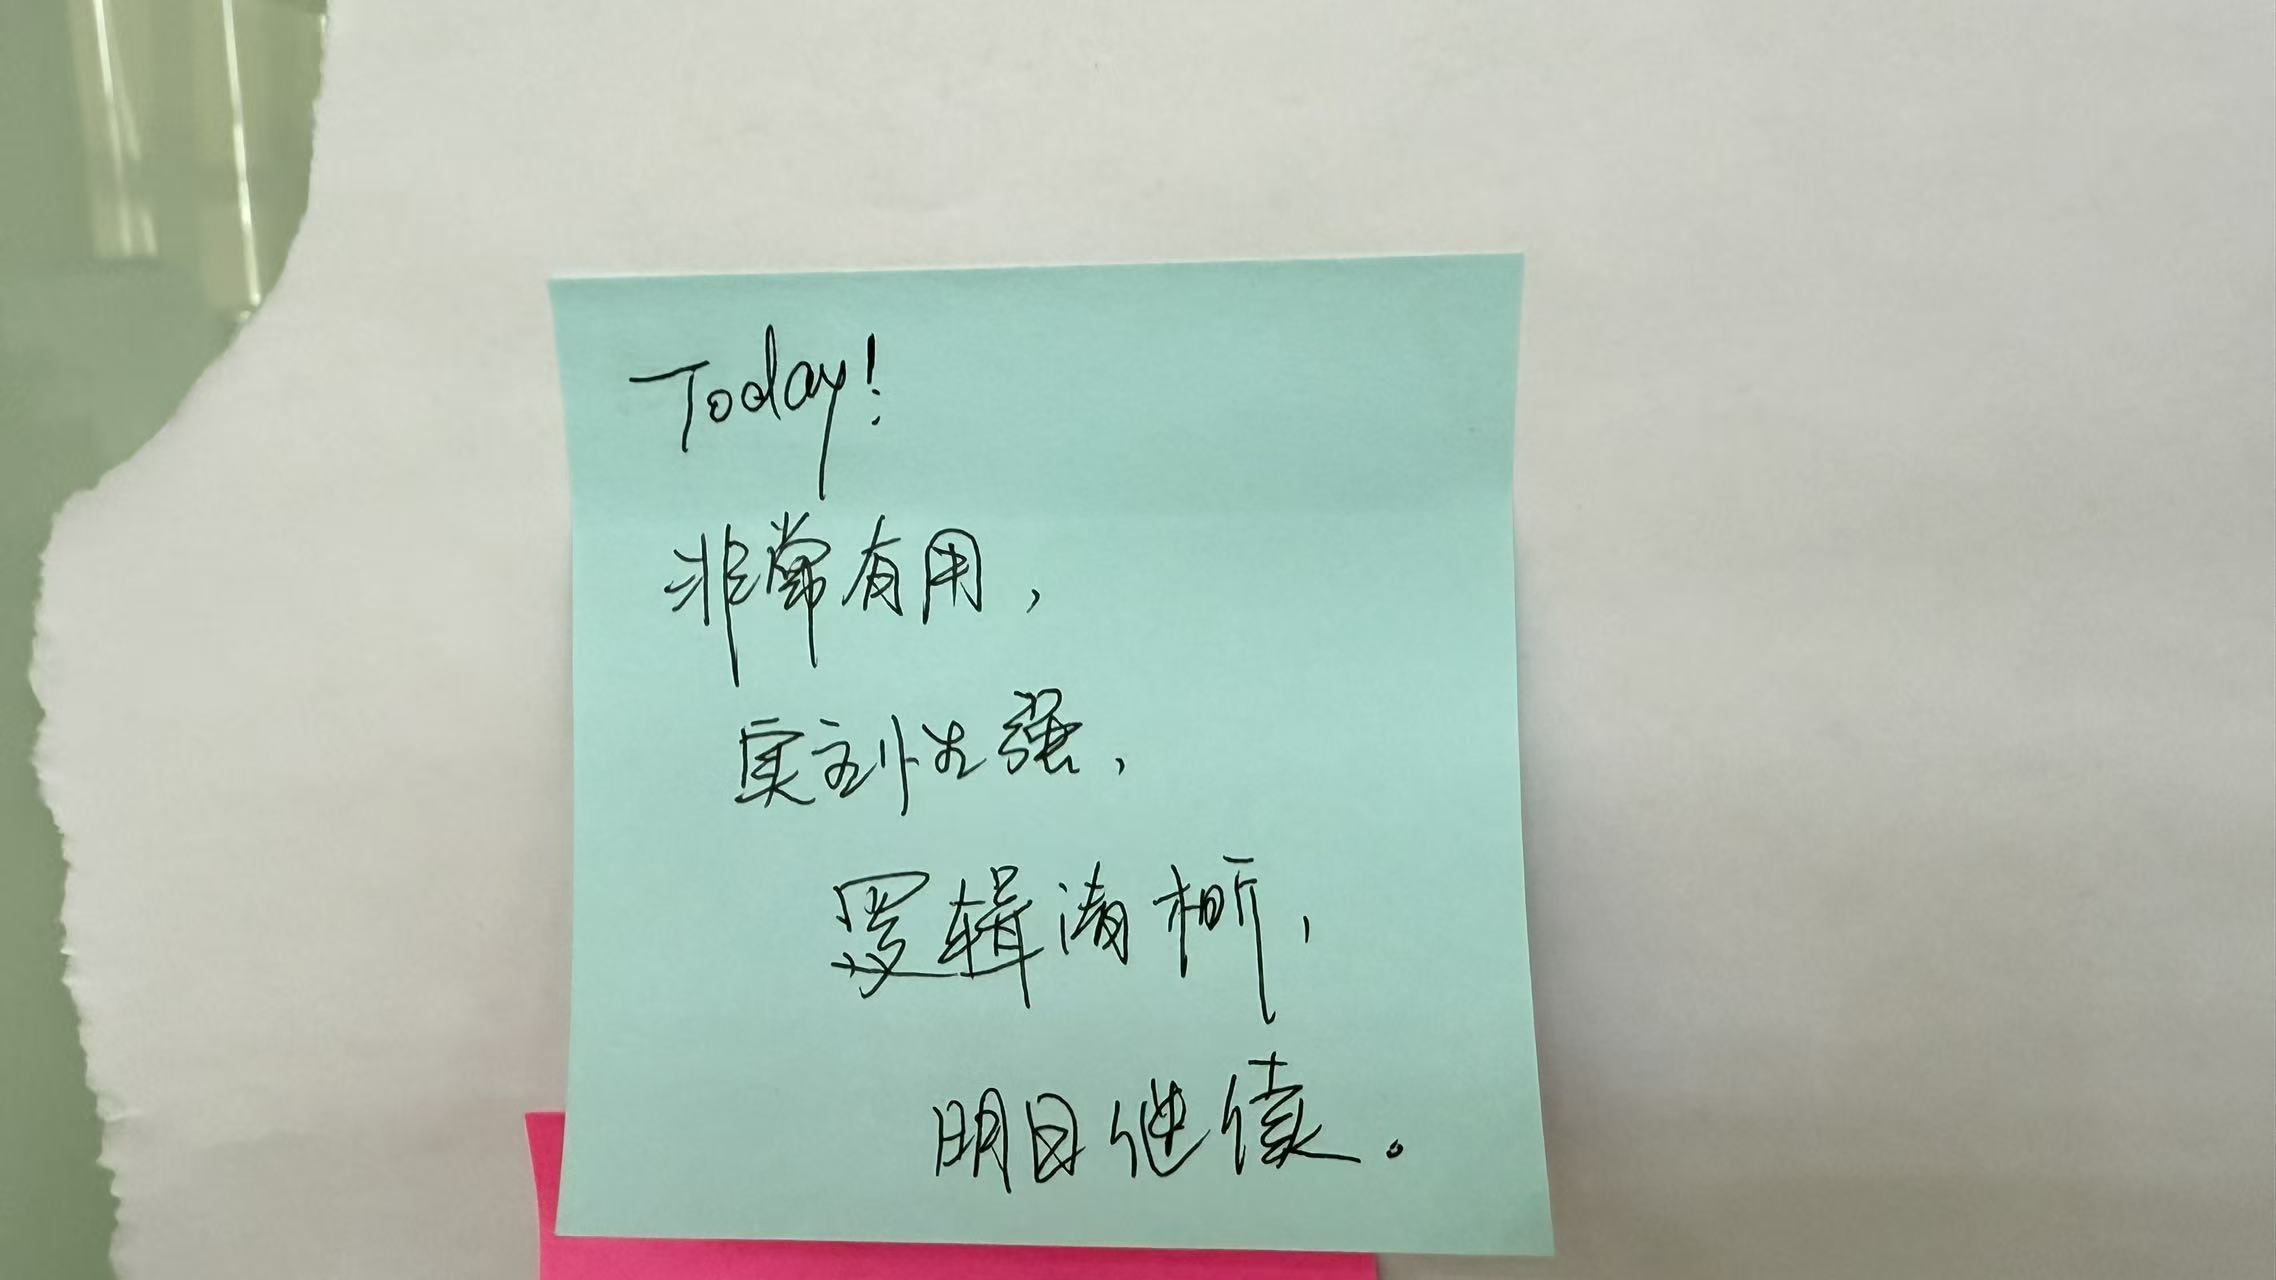 Today!
非常有用，
实刻性强，
逻辑清晰，
明日继续。